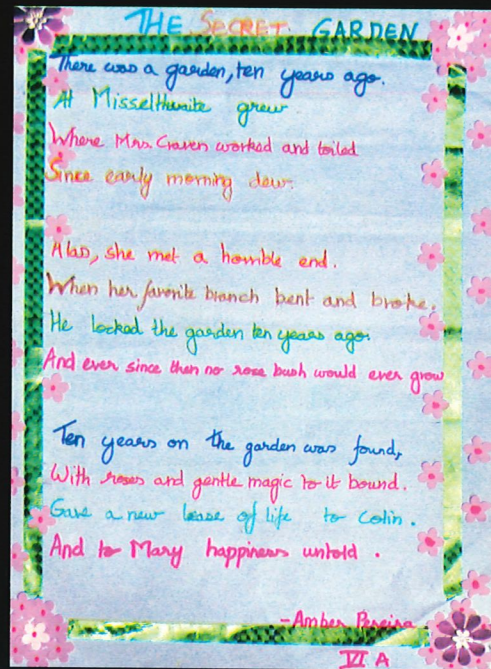 THE SECRET GARDEN
There was a garden, ten years ago.
At Misselthwaite grew
Where Mrs. Craven worked and toiled
Since early morning dew.
Alas, she met a horrible end.
When her favorite branch bent and broke.
He locked the garden ten years ago.
And ever since then no rose bush would ever grow
Ten years on the garden was found,
With roses and gentle magic to it bound.
Gave a new lease of life to Colin.
And to Mary happiness untold.
-Amber Pereira
VI A